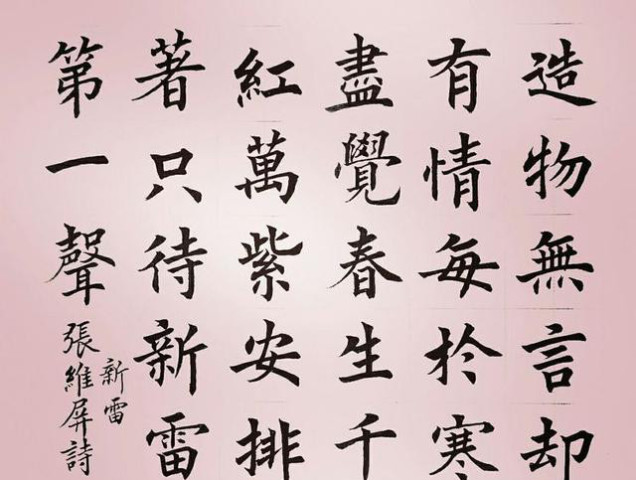 造物無言却
有情每於寒
盡覺春生千
紅萬紫安排
著只待新雷
第一聲
新雷
張維屏詩